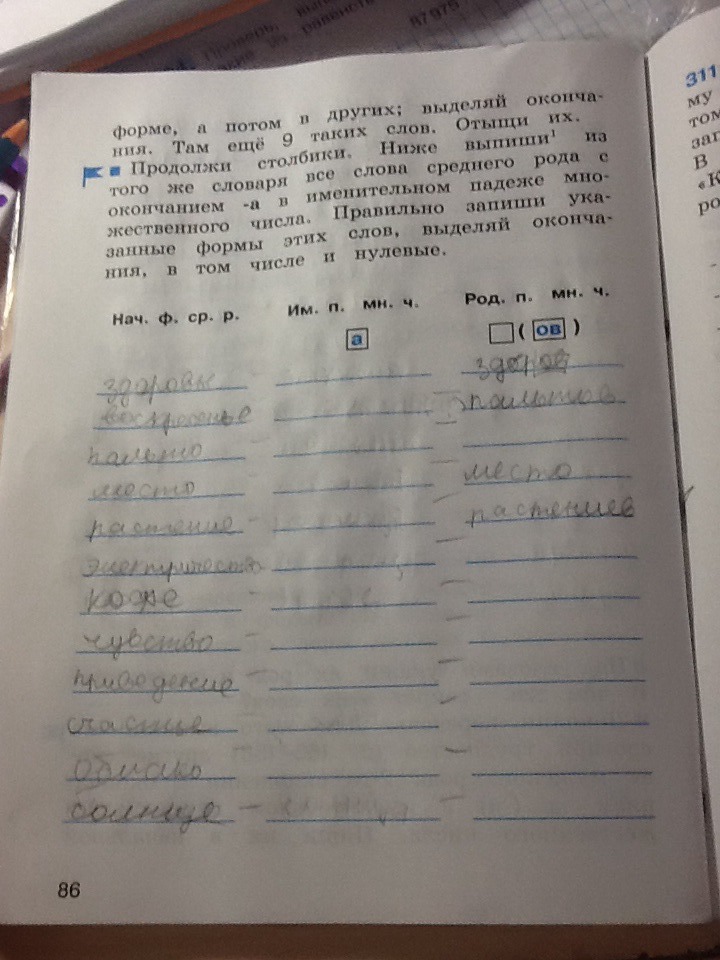 Проверь, выпо
87975
форме, а потом в других; выделяй оконча-
ния. Там ещё 9 таких слов. Отыщи их.
Продолжи столбики. Ниже выпиши¹ из
того же словаря все слова среднего рода с
окончанием -а в именительном падеже мно-
жественного числа. Правильно запиши ука-
занные формы этих слов, выделяй оконча-
ния, в том числе и нулевые.
Нач. ф. ср. р. Им. п. мн. ч. Род. п. мн. ч.
а ( ов )
здоровье
воскресенье пальтов
пальто
место место
растение растениев
электричество
кофе
чувство
приведение
счастье
облако
солнце
86
311
му
том
зап
В
«К
ро